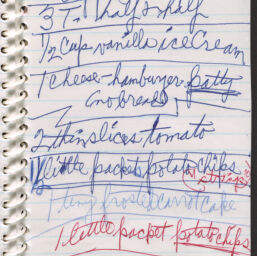 3 T. half & half
1/2 cup vanilla ice cream
1 cheese-hamburger patty
(no bread)
2 thin slices tomato
1/2 little packet potato chips
1 tiny frosted carrot cake
1 little packet potato chips